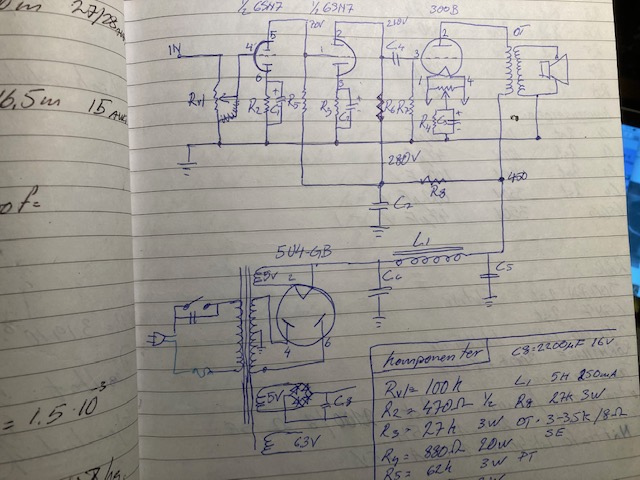 27/28
6,5m 15
of=
= 1.5·10⁻³
½ 6SN7 ½ 6SN7 300B
5 70V 2 210V 2 OT
IN 4 1 C4 3
6 3 1 4
RV1 R2 C1 R5 R3 R6 R7 R4
280V
R8 450
C2
5U4-GB L1
5V 2
C6 C5
4 6
5V C8
63V
Komponenter C8=2200µF 16V
RV1= 100k L1 5H 250mA
R2= 470Ω ½ R8 27k 3W
R3= 27k 3W OT· 3-3.5K/8Ω
SE
R4= 880Ω 20W PT
R5= 62k 3W